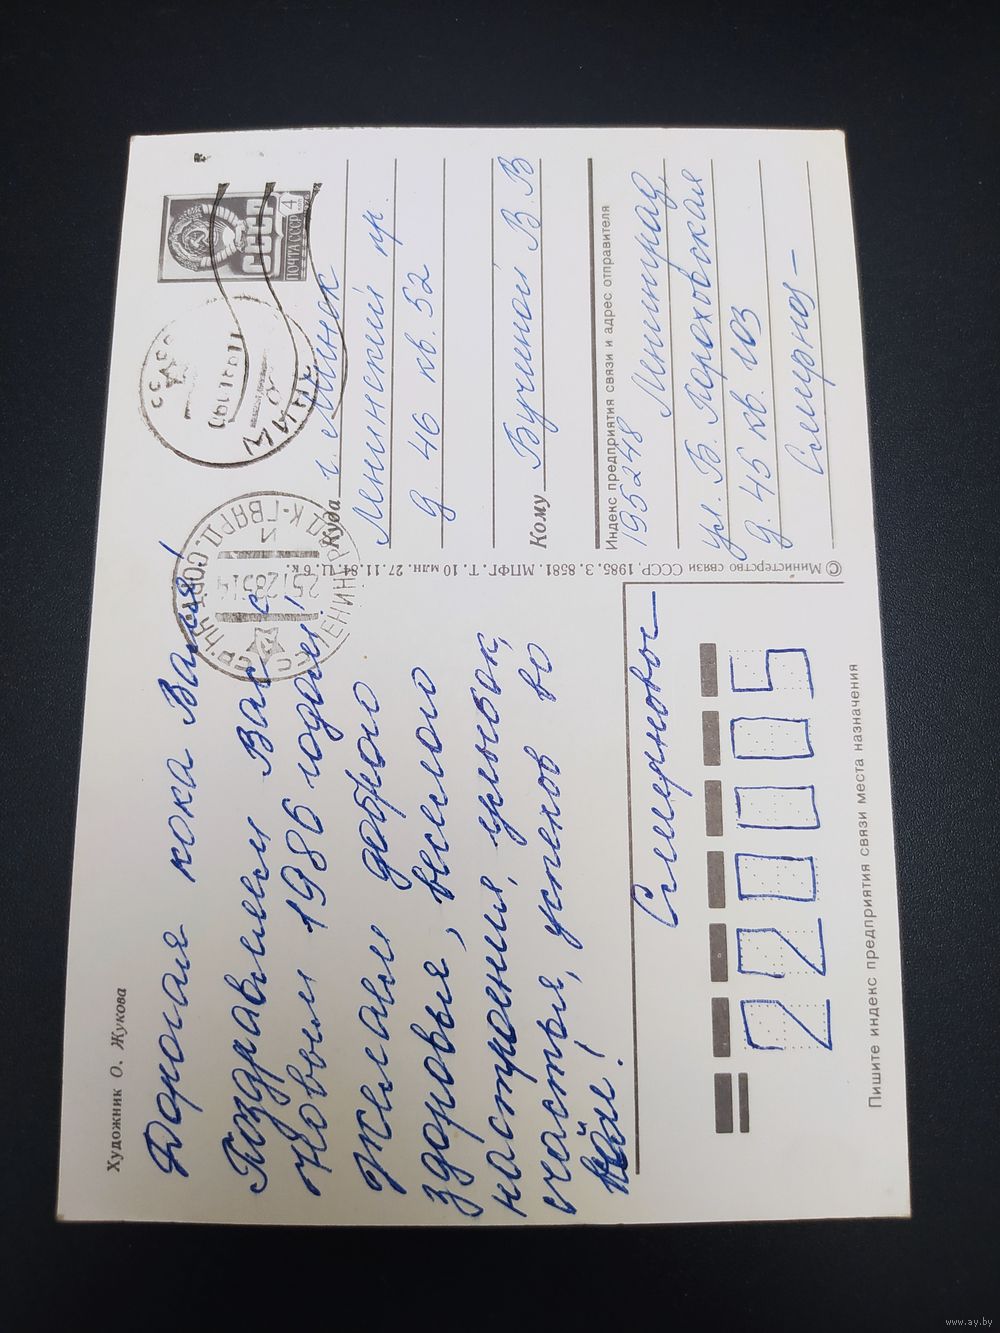 Художник О. Жукова
Дорогая кока Валя!
Поздравляем Вас с
Новым 1986 годом!
Желаем доброго
здоровья, веселого
настроения, улыбок,
счастья, успехов во
всём!
Смирновы
© Министерство связи СССР, 1985. З. 8581. МПФГ. Т. 10 млн. 27.11.84. Ц. 6 к.
ПОЧТА СССР
4
СССР
СССР
МИНСК
ЛЕНИНГРАД К-ГВАРД. СОРТ
251285 14
Куда г. Минск
Ленинский пр.
д. 46 кв. 52
Кому Бучиной В. В
Индекс предприятия связи и адрес отправителя
195248 Ленинград,
ул. Б. Пороховская
д. 45 кв. 103
Смирнов
220005
Пишите индекс предприятия связи места назначения
www.ay.by